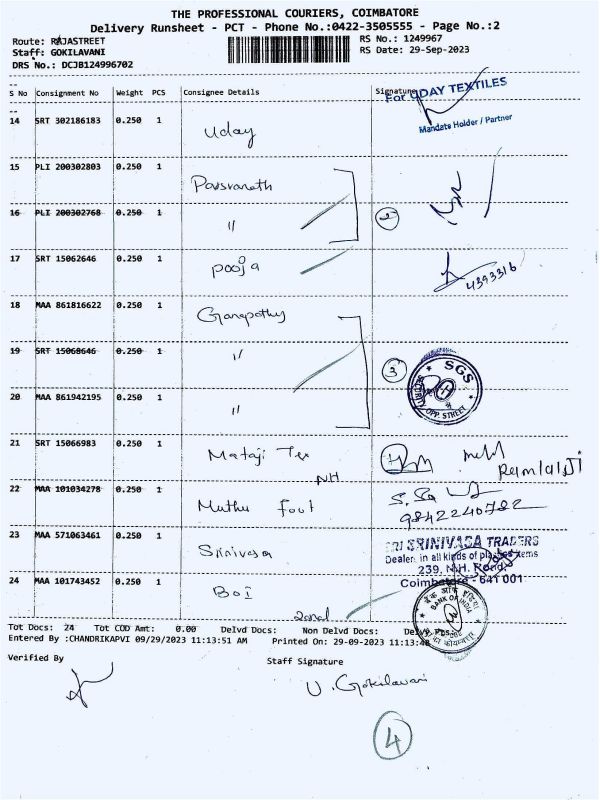 THE PROFESSIONAL COURIERS, COIMBATORE
Delivery Runsheet - PCT - Phone No.:0422-3505555 - Page No.:2
Route: RAJASTREET RS No.: 1249967
Staff: GOKILAVANI RS Date: 29-Sep-2023
DRS No.: DCJB124996702
S No Consignment No Weight PCS Consignee Details Signature
For UDAY TEXTILES
14 SRT 302186183 0.250 1 Uday
Mandate Holder / Partner
15 PLI 200302803 0.250 1 Parsvanath
16 PLI 200302768 0.250 1 " 2
17 SRT 15062646 0.250 1 Pooja 4393316
18 MAA 861816622 0.250 1 Ganapathy
19 SRT 15068646 0.250 1 " 3 SGS
20 MAA 861942195 0.250 1 " SECURITY OPP. STREET
21 SRT 15066983 0.250 1 Mataji Tex
NH
22 MAA 101034278 0.250 1 Muthu Foot
9842240782
23 MAA 571063461 0.250 1 Srinivasa
SRI SRINIVASA TRADERS
Dealer in all kinds of plastics items
239, N.H. Road,
Coimbatore - 641 001
24 MAA 101743452 0.250 1 BOI
BANK OF INDIA
Tot Docs: 24 Tot COD Amt: 0.00 Delvd Docs: Non Delvd Docs:
Entered By :CHANDRIKAPVI 09/29/2023 11:13:51 AM Printed On: 29-09-2023 11:13:48
Verified By Staff Signature
V. Gokilavani
4